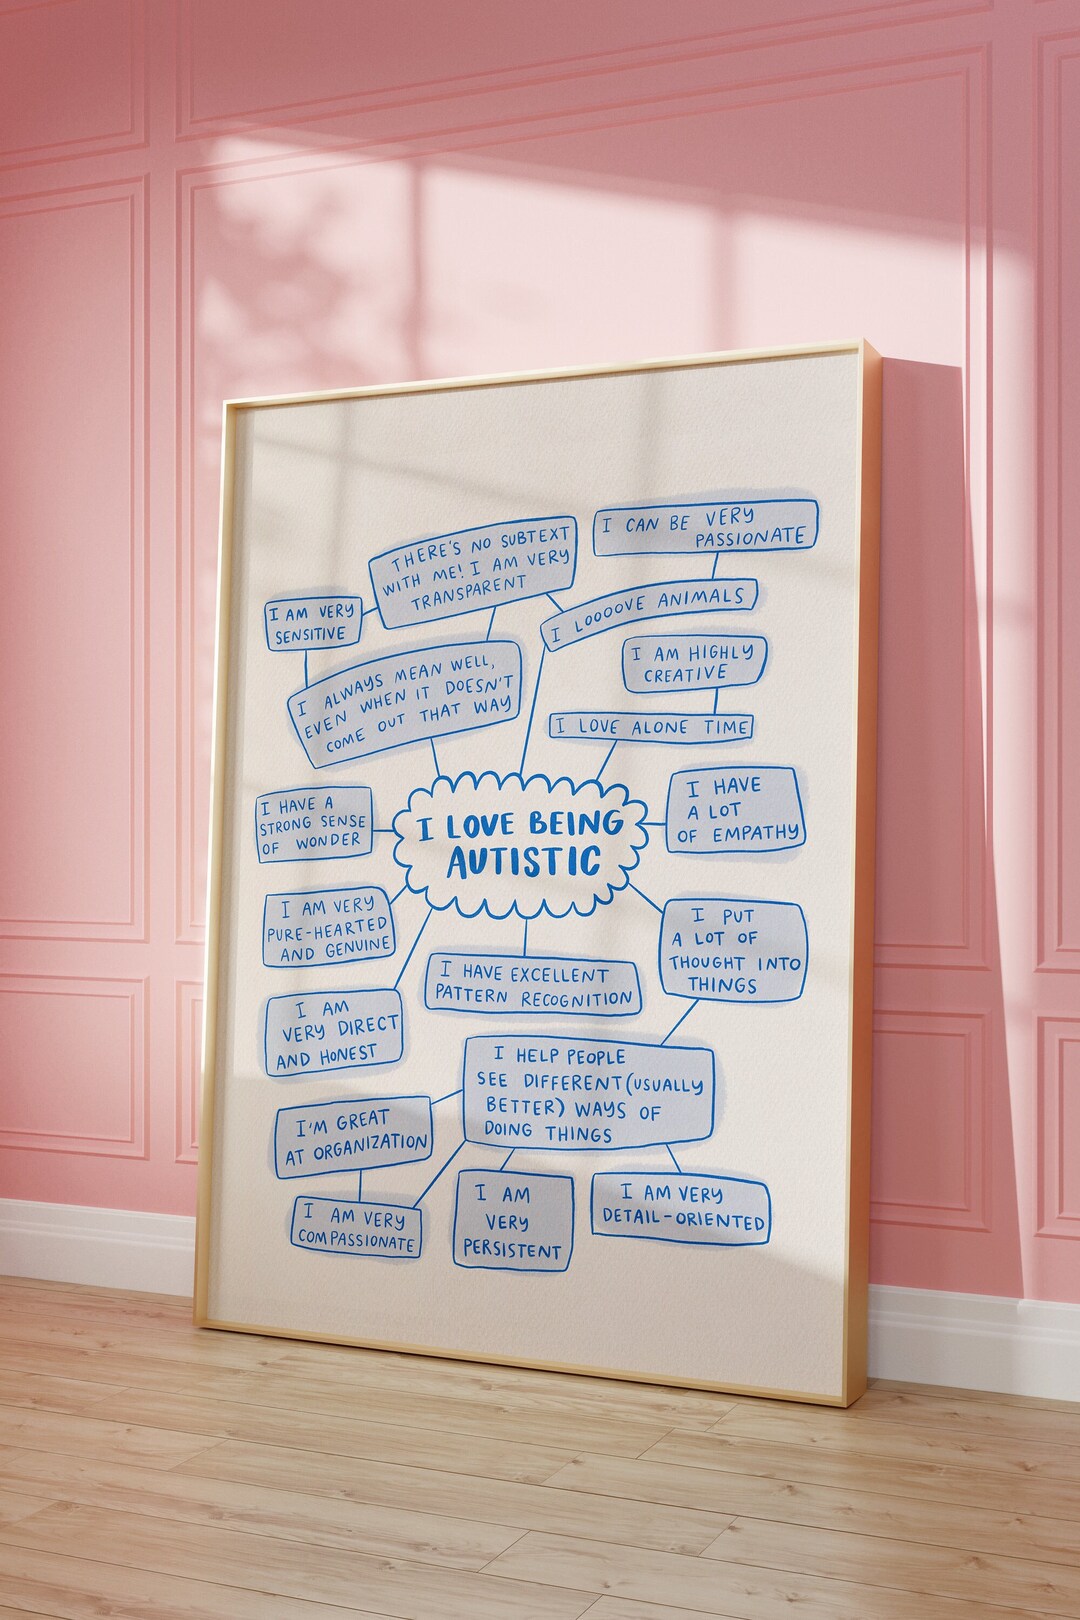 I CAN BE VERY
PASSIONATE
THERE'S NO SUBTEXT
WITH ME! I AM VERY
TRANSPARENT
I LOOOOVE ANIMALS
I AM VERY
SENSITIVE
I AM HIGHLY
CREATIVE
I ALWAYS MEAN WELL,
EVEN WHEN IT DOESN'T
COME OUT THAT WAY
I LOVE ALONE TIME
I HAVE A
STRONG SENSE
OF WONDER
I LOVE BEING
AUTISTIC
I HAVE
A LOT
OF EMPATHY
I AM VERY
PURE-HEARTED
AND GENUINE
I PUT
A LOT OF
THOUGHT INTO
THINGS
I HAVE EXCELLENT
PATTERN RECOGNITION
I AM
VERY DIRECT
AND HONEST
I HELP PEOPLE
SEE DIFFERENT (USUALLY
BETTER) WAYS OF
DOING THINGS
I'M GREAT
AT ORGANIZATION
I AM VERY
COMPASSIONATE
I AM
VERY
PERSISTENT
I AM VERY
DETAIL-ORIENTED